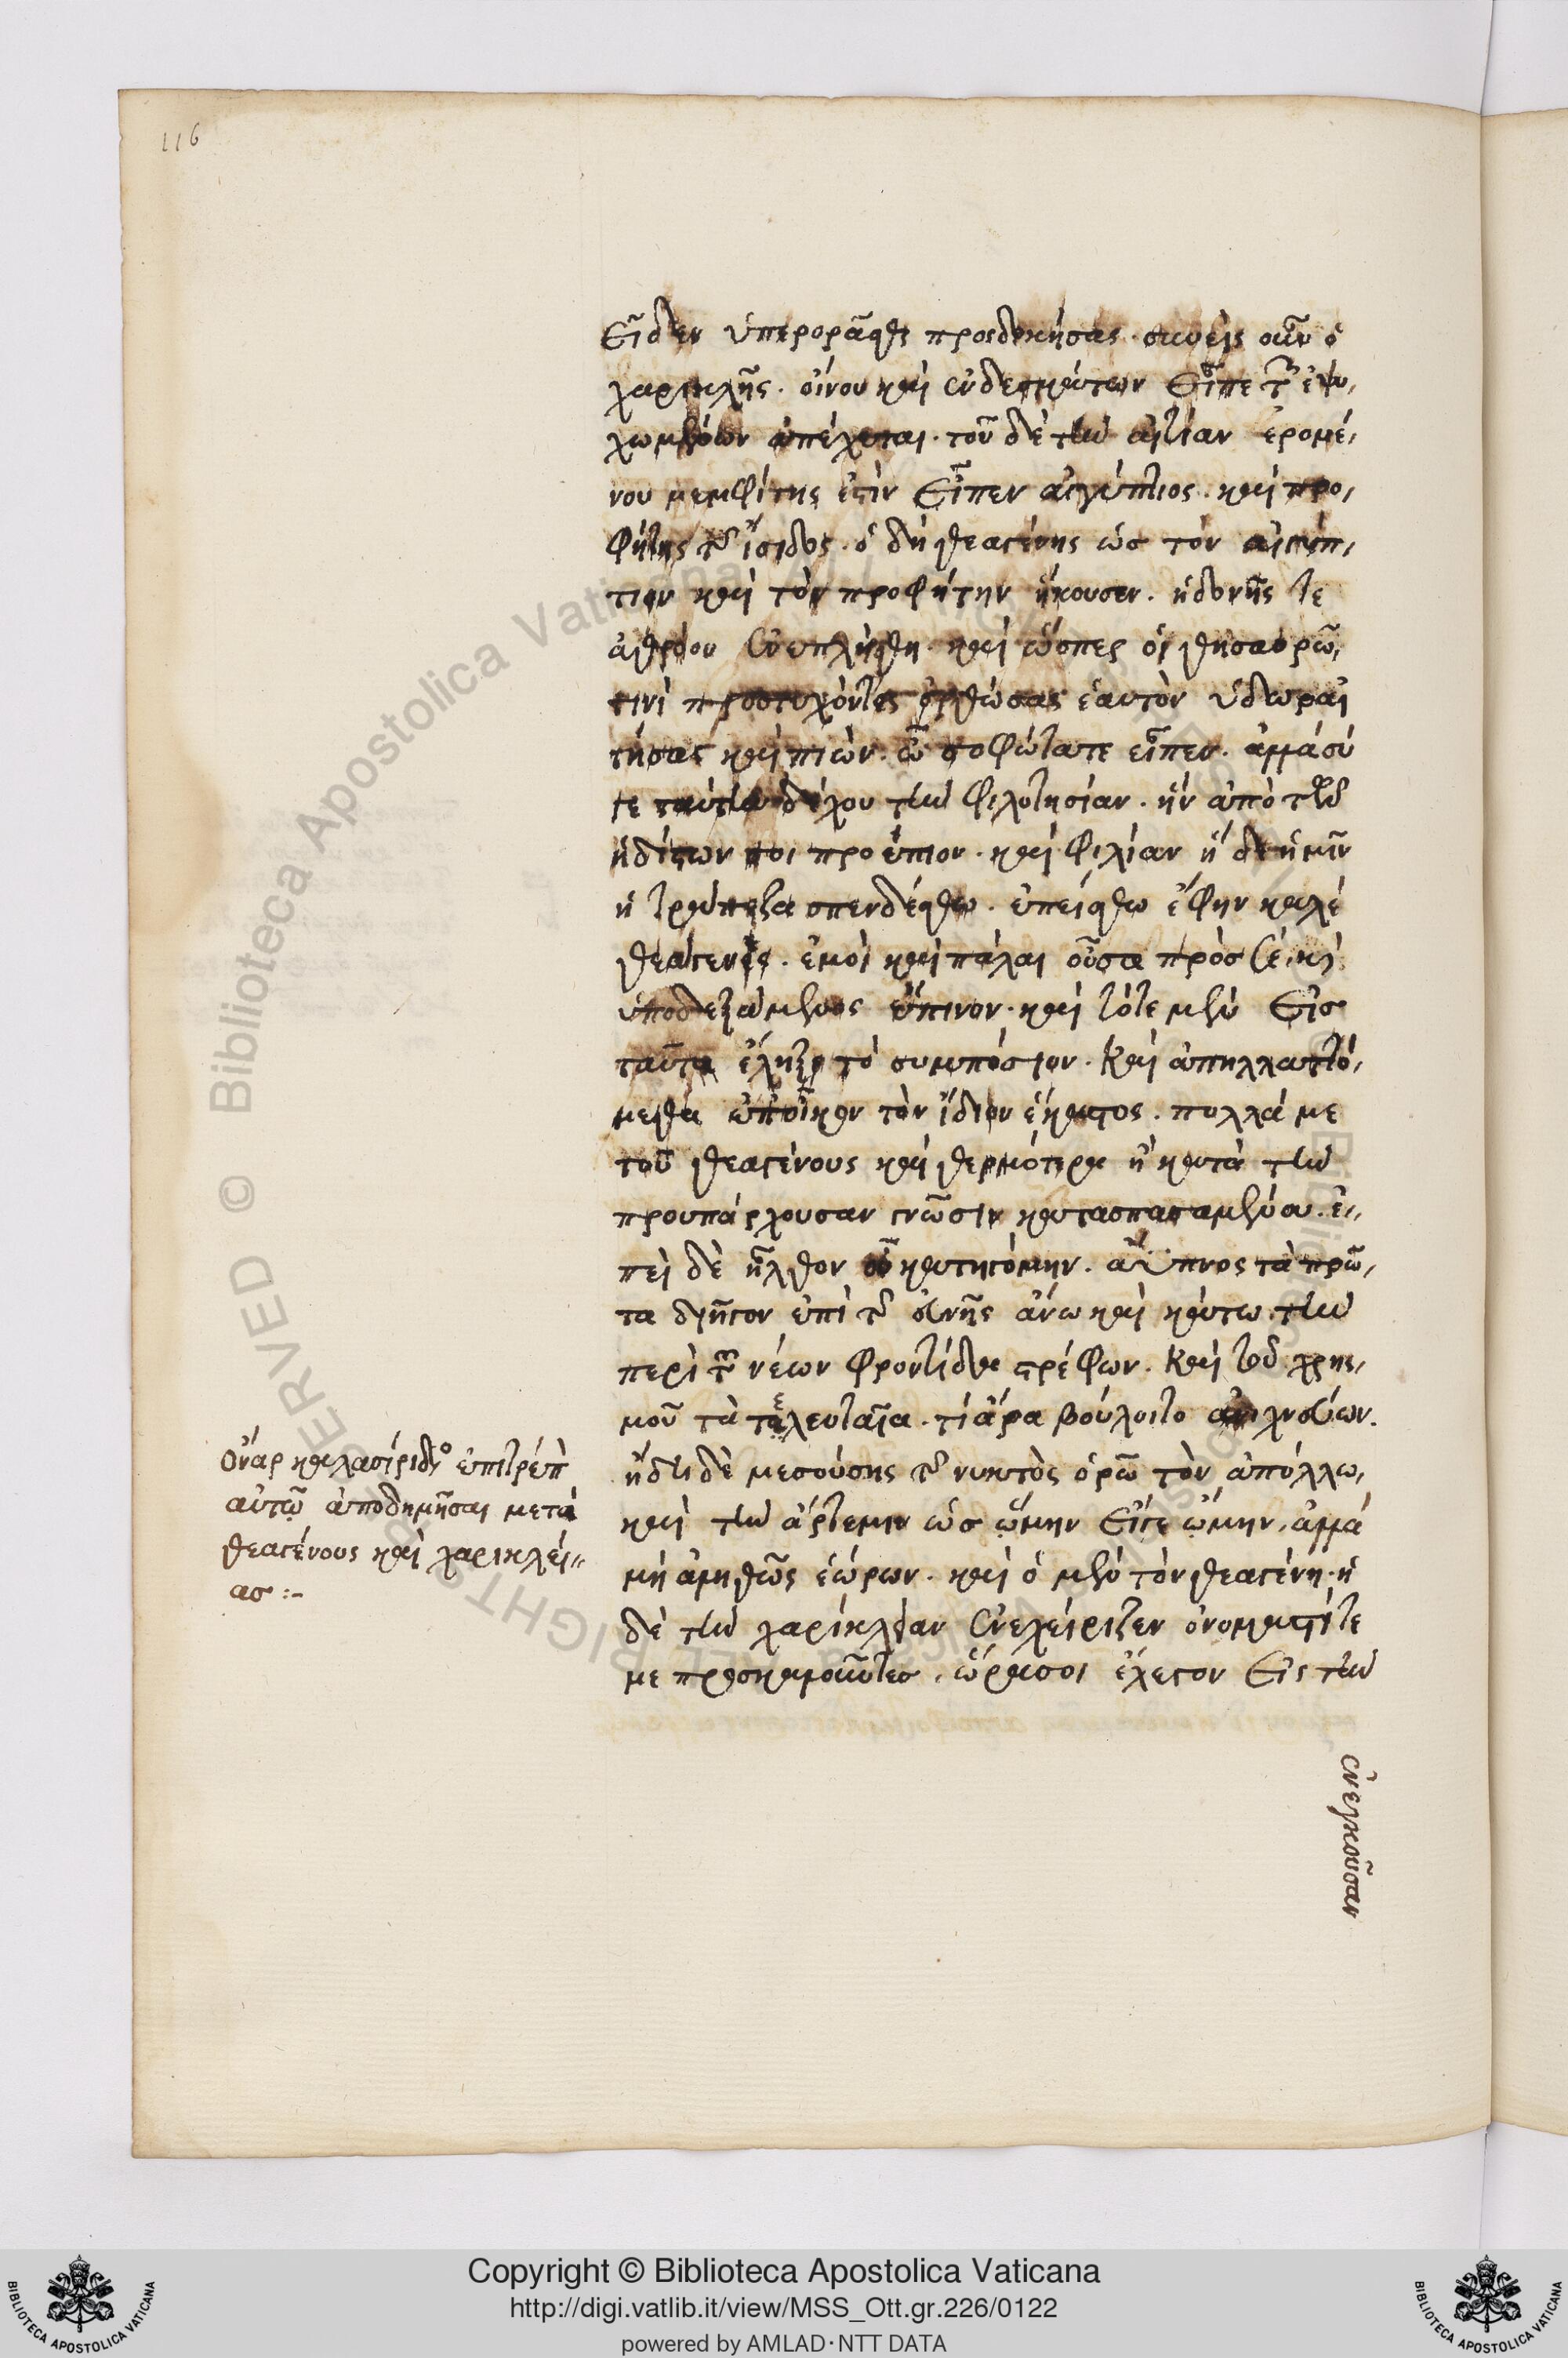 116
εἶδεν ὑπερορᾶσθαι προσδοκήσας. συνεὶς οὖν ὁ
χαρικλῆς. οἴνου καὶ ἐνδεσμάτων εἶπε τῶν ἐψυ,
χωμένων ἀπέχεται. τοῦ δὲ τὴν αἰτίαν ἐρομέ,
νου μεμφίτης ἐστὶν εἶπεν αἰγύπτιος. καὶ προ,
φήτης τῆς ἴσιδος. ὁ δὴ θεαγένης ὡς τὸν αἰγύπ,
τιον καὶ τὸν προφήτην ἤκουσεν. ἡδονῆς τε
ἀθρόον ἐνεπλήσθη. καὶ ὥσπερ οἱ θησαυρῶ,
τινὶ προστυχόντες ὀρθώσας ἑαυτὸν ὕδωρ αἰ
τήσας καὶ πιὼν. ὦ σοφώτατε εἶπεν. ἀλλὰ σύ
γε ταύτην δέχου τὴν φιλοτησίαν. ἣν ἀπὸ τῶν
ἡδίστων σοι προέπιον. καὶ φιλίαν ἥδε ἡμῖν
ἡ τράπεζα σπενδέσθω. ἐσπείσθω ἔφην καλὲ
θεάγενες. ἐμοὶ καὶ πάλαι οὖσα πρὸς σέ. καὶ
ὑποδεξάμενος ἔπινον. καὶ τότε μὲν εἰς
ταῦτα ἔληξε τὸ συμπόσιον. καὶ ἀπηλλαττό,
μεθα ἐπ' οἶκον τὸν ἴδιον ἕκαστος. πολλά με
τοῦ θεαγένους καὶ θερμότερα ἢ κατὰ τὴν
προυπάρχουσαν γνῶσιν κατασπασαμένου. ἐ,,
πεὶ δὲ ἦλθον οὗ κατηγόμην. ἄϋπνος τὰ πρῶ,
τα διῆγον ἐπὶ τῆς εὐνῆς ἄνω καὶ κάτω. τὴν
περὶ τῶν νέων φροντίδα στρέφων. καὶ τοῦ χρησ,
μοῦ τὰ τελευταῖα. τί ἄρα βούλοιτο ἀνιχνεύων.
ἤδη δὲ μεσούσης τῆς νυκτὸς ὁρῶ τὸν ἀπόλλω,
καὶ τὴν ἄρτεμιν ὡς ᾤμην εἴγε ᾤμην, ἀλλὰ
μὴ ἀληθῶς ἑώρων. καὶ ὁ μὲν τὸν θεαγένη. ἡ
δὲ τὴν χαρίκλειαν ἐνεχείριζεν ὀνομαστί τε
με προσκαλοῦντες. ὥρα σοι ἔλεγον εἰς τὴν
ἐνεγκοῦσαν
ὄναρ καλασίριδος ἐπιτρέπον
αὐτῷ ἀποδημῆσαι μετὰ
θεαγένους καὶ χαρικλεί,,
ας :-
© Biblioteca Apostolica Vaticana
ALL RIGHTS RESERVED
Copyright © Biblioteca Apostolica Vaticana
http://digi.vatlib.it/view/MSS_Ott.gr.226/0122
powered by AMLAD·NTT DATA
BIBLIOTECA APOSTOLICA VATICANA
BIBLIOTECA APOSTOLICA VATICANA